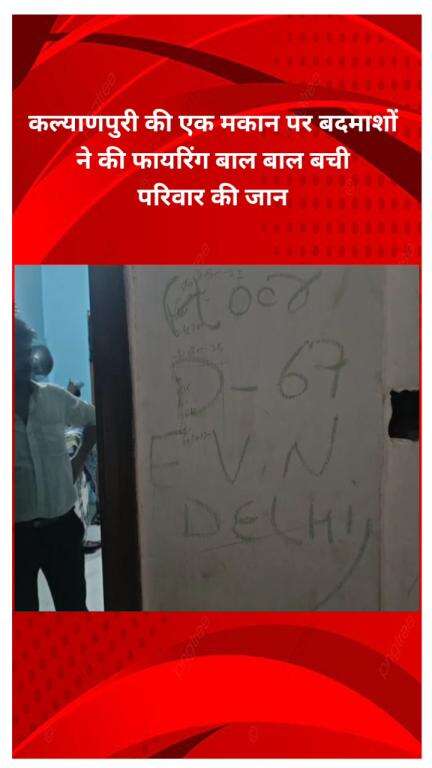 कल्याणपुरी की एक मकान पर बदमाशों
ने की फायरिंग बाल बाल बची
परिवार की जान
D-67
E.V.N.
DELHI